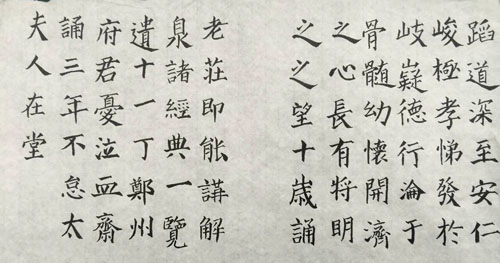 蹈道深至安仁
峻極孝悌發於
岐嶷德行淪于
骨髓幼懷開濟
之心長有將明
之之望十歲誦
老莊即能講解
泉諸經典一覽
遺十一丁鄭州
府君憂泣血齋
誦三年不怠太
夫人在堂